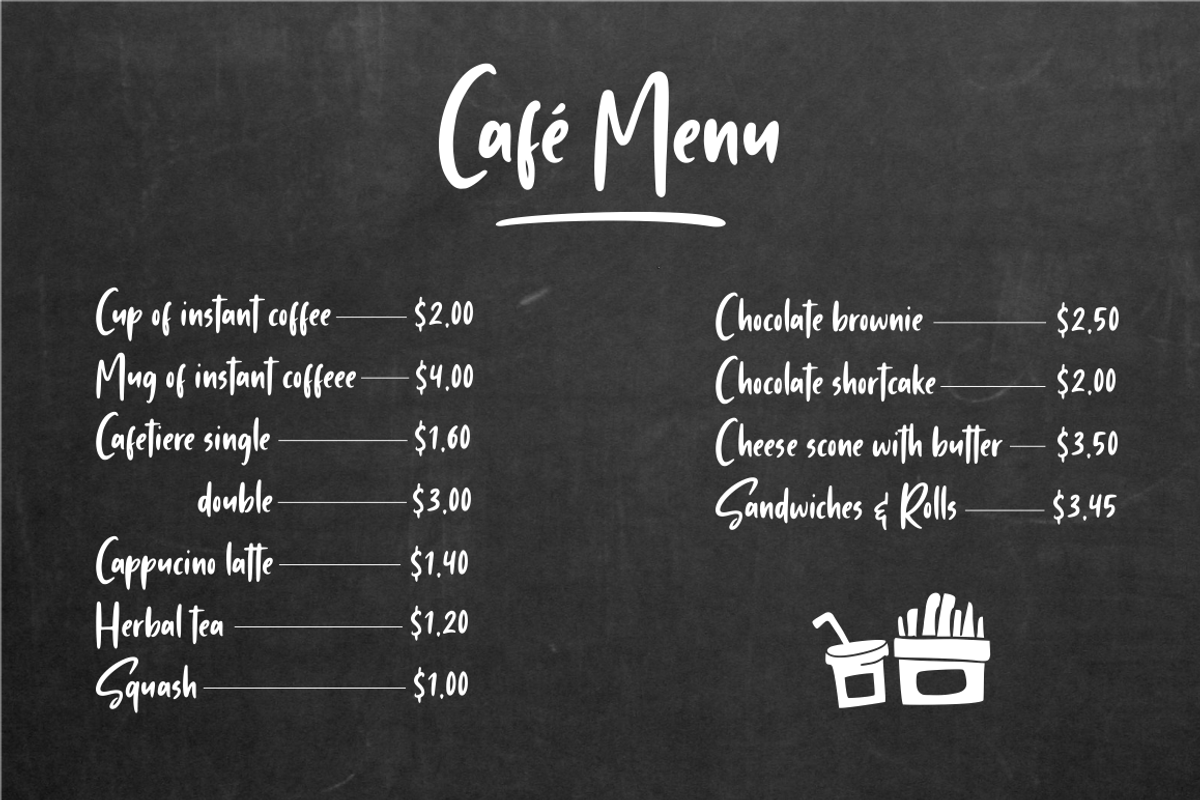 Café Menu
Cup of instant coffee $2.00
Mug of instant coffeee $4.00
Cafetiere single $1.60
double $3.00
Cappucino latte $1.40
Herbal tea $1.20
Squash $1.00
Chocolate brownie $2.50
Chocolate shortcake $2.00
Cheese scone with butter $3.50
Sandwiches & Rolls $3.45